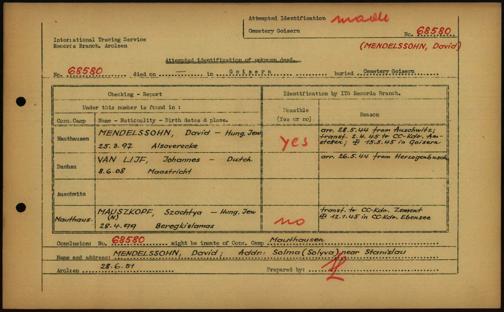 Attempted Identification made
Cemetery Goisern
International Tracing Service
Records Branch, Arolsen
No. 68580
(MENDELSSOHN, David)
Attempted identification of unknown dead.
No. 68580 died on — in Goisern buried Cemetery Goisern
Checking - Report
Identification by ITS Records Branch.
Under this number is found in:
Possible (Yes or no)
Reason
Conc.Camp
Name - Nationality - Birth dates & place.
Mauthausen
MENDELSSOHN, David - Hung. Jew
25.3.92 Alsovereoke
yes
arr. 28.5.44 from Auschwitz;
transf. 2.4.45 to CC-Kdr. Am-
stetten; ✝ 15.5.45 in Goisern
Dachau
VAN LIJF, Johannes - Dutch
8.6.08 Maastricht
arr. 26.5.44 from Herzogenbusch
Auschwitz
Mauthaus.
MAUSZKOPF, Szachtya - Hung. Jew
(N)
28.4.99 Beregkislamas
no
transf. to CC-Kdr. Zement
✝ 12.1.45 in CC-Kdr. Ebensee
Conclusion: No. 68580 might be inmate of Conc. Camp Mauthausen
Name and address: MENDELSSOHN, David; Addr: Solma (Solyva) near Stanislau
Arolsen 28.6.51 Prepared by: